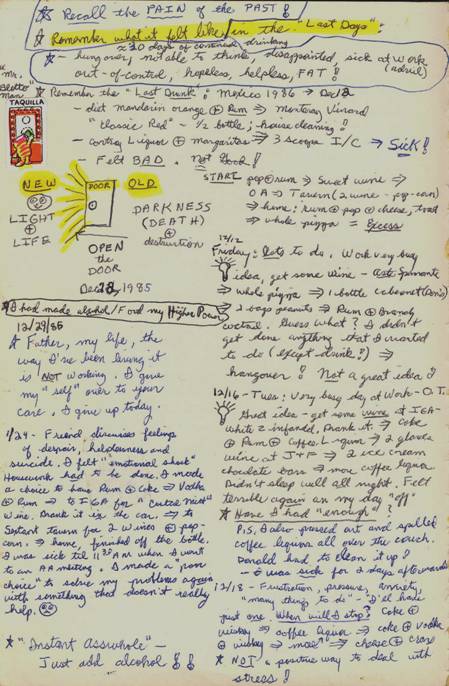 ☆ Recall the PAIN of the PAST!
☆ Remember what it felt like in the "Last Days":
≈30 days of continued drinking
☆ - hung over, not able to think, disappointed, sick at work
(advil)
out-of-control, hopeless, helpless, FAT!
☆ Remember the "Last Drunk": Mexico 1986 →
"Mr.
Blotto
Man"
TAQUILLA
- diet mandarin orange ⊕ Rum ⇒ Monterey Vineyard
"Classic Red" - 1/2 bottle; house cleaning!
- coffee Liquor ⊕ margaritas ⇒ 3 scoops I/C ⇒ Sick!
- Felt BAD. Not Good!
NEW
⊕
LIGHT
⊕
LIFE
DOOR
OLD
DARKNESS
(DEATH)
⊕
destruction
OPEN
the
DOOR
Dec 28, 1985
START pop ⊕ rum ⇒ Sweet wine ⇒
OA ⇒ Tavern (2 wine - pop-corn)
⇒ home: rum ⊕ pop ⊕ cheese, toast
⇒ whole pizza = Excess
12/12
Friday: Lots to do. Work very busy
idea, get some wine - Asti Spumante
⇒ whole pizza ⇒ 1 bottle cabernet
⇒ 2 bags peanuts ⇒ Rum ⊕ Brandy
cocktail. Guess what? I didn't
get done anything that I wanted
to do (except drink?) ⇒
hangover! Not a great idea!
☆ I had made alcohol/Food my Higher Power
12/29/85
☆ Father, my life, the
way I've been living it
is NOT working. I give
my "self" over to your
care. I give up today.
1/24 - Friend discusses feelings
of despair, helplessness and
suicide. I felt "emotional shock"
Housework had to be done. I made
a choice to have Rum ⊕ Coke ⇒ Vodka
⊕ Rum ⇒ to IGA for
wine. Drank it in the car ⇒ to
Sextant tavern for 2 wines ⊕ pop-
corn. ⇒ home, finished off the bottle.
I was sick til 11:30 AM when I went
to an AA meeting. I made a "poor
choice" to solve my problems again
with something that doesn't really
help.
☆ "Instant Asswhole" -
Just add alcohol!!
12/16 - Tues: Very busy day at Work - O.T.
Great idea - get some wine at IGA -
white zinfandel. Drank it. ⇒ Coke
⊕ Rum ⊕ Coffee L. ⇒ 2 glasses
wine at J+F ⇒ 2 ice cream
chocolate bars ⇒ more coffee liquor.
Didn't sleep well all night. Felt
terrible again on my day "off"
☆ Have I had "enough"?
P.S. I also passed out and spilled
coffee liquor all over the couch.
Donald had to clean it up!
- I was sick for 2 days afterwards
12/18 - Frustration, pressure, anxiety,
"many things to do" - I'll have
just one. When will I stop? Coke ⊕
whiskey ⇒ coffee liquor ⇒ coke ⊕ vodka
⊕ whiskey ⇒ more ⇒ cheese ⊕
☆ NOT a positive way to deal with
stress!